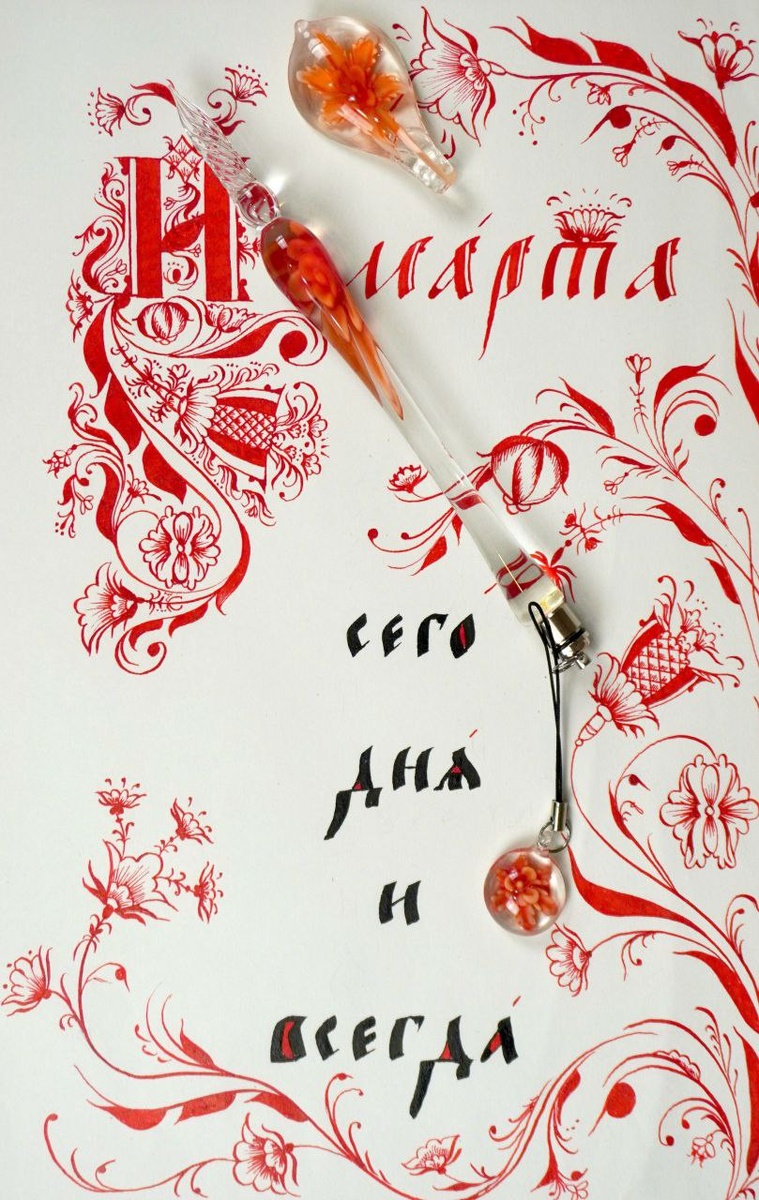 И ма́рта
сего
днѧ́
и
всегда́